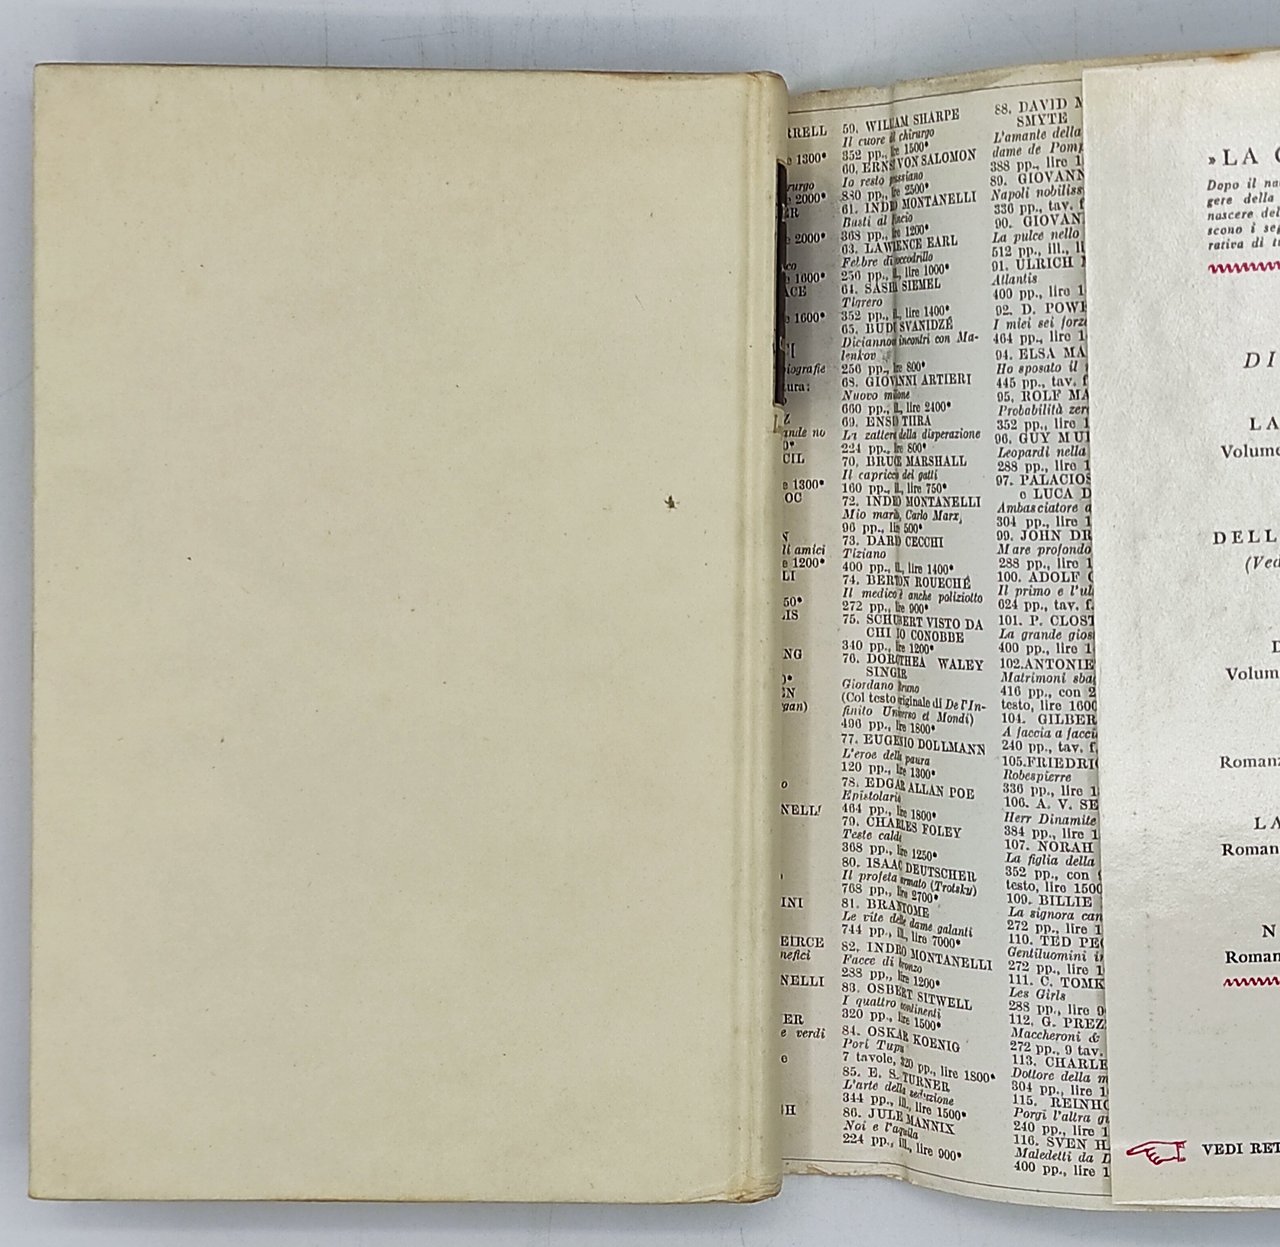 RRELL
1300*
rurgo
2000*
2000*
1600*
ACE
1600*
iografie
tura:
ande no
CIL
1300*
OC
li amici
1200*
LI
50*
LIS
NG
EN
gan)
NELLI
INI
EIRCE
nefici
NELLI
ER
e verdi
59. WILLIAM SHARPE
Il cuore il chirurgo
352 pp., lire 1500*
60. ERNST VON SALOMON
Io resto prussiano
880 pp., lire 2500*
61. INDRO MONTANELLI
Busti al Fascio
368 pp., lire 1200*
63. LAWRENCE EARL
Febbre di coccodrillo
256 pp., il., lire 1000*
64. SASHA SIEMEL
Tigrero
352 pp., il., lire 1400*
65. BUDU SVANIDZÉ
Diciannove incontri con Ma-
lenkov
256 pp., lire 800*
68. GIOVANNI ARTIERI
Nuovo milione
660 pp., il., lire 2400*
69. ENSIO TIIRA
La zattera della disperazione
224 pp., lire 800*
70. BRUCE MARSHALL
Il capriccio dei gatti
160 pp., il., lire 750*
72. INDRO MONTANELLI
Mio marito, Carlo Marx,
96 pp., lire 500*
73. DARIO CECCHI
Tiziano
400 pp., il., lire 1400*
74. BERTON ROUECHÉ
Il medico è anche poliziotto
272 pp., lire 900*
75. SCHUBERT VISTO DA
CHI LO CONOBBE
340 pp., lire 1200*
76. DOROTHEA WALEY
SINGER
Giordano Bruno
(Col testo originale di De l'In-
finito Universo et Mondi)
496 pp., lire 1800*
77. EUGENIO DOLLMANN
L'eroe della paura
120 pp., lire 1300*
78. EDGAR ALLAN POE
Epistolario
464 pp., lire 1800*
79. CHARLES FOLEY
Teste calde
368 pp., lire 1250*
80. ISAAC DEUTSCHER
Il profeta armato (Trotsky)
768 pp., lire 2700*
81. BRANTOME
Le vite delle dame galanti
744 pp., il., lire 7000*
82. INDRO MONTANELLI
Facce di bronzo
288 pp., lire 1200*
83. OSBERT SITWELL
I quattro continenti
320 pp., lire 1500*
84. OSKAR KOENIG
Pori Tupu
7 tavole, 320 pp., lire 1800*
85. E. S. TURNER
L'arte della seduzione
344 pp., ill., lire 1500*
86. JULE MANNIX
Noi e l'aquila
224 pp., ill., lire 900*
88. DAVID M
SMYTE
L'amante della
dame de Pomp
388 pp., lire 1
89. GIOVANN
Napoli nobiliss
336 pp., tav. f
90. GIOVAN
La pulce nello
512 pp., ill., li
91. ULRICH
Atlantis
400 pp., lire 1
92. D. POWE
I miei sei forz
464 pp., lire 1
94. ELSA MA
Ho sposato il
445 pp., tav. f
95. ROLF MA
Probabilità zer
352 pp., lire 1
96. GUY MU
Leopardi nella
288 pp., lire 1
97. PALACIOS
e LUCA D
Ambasciatore a
304 pp., lire 1
99. JOHN DR
Mare profondo
288 pp., lire 1
100. ADOLF
Il primo e l'ul
624 pp., tav. f.
101. P. CLOST
La grande gios
400 pp., lire 1
102. ANTONIE
Matrimoni sbag
416 pp., con 2
testo, lire 1600
104. GILBER
A faccia a facci
240 pp., tav. f.
105. FRIEDRIC
Robespierre
336 pp., lire 1
106. A. V. SE
Herr Dinamite
384 pp., lire 1
107. NORAH
La figlia della
352 pp., con
testo, lire 1500
109. BILLIE
La signora can
272 pp., lire 1
110. TED PE
Gentiluomini i
272 pp., lire 1
111. C. TOMK
Les Girls
288 pp., lire 9
112. G. PREZ
Maccheroni &
272 pp., 9 tav.
113. CHARLE
Dottore della m
304 pp., lire 1
115. REINHO
Porgi l'altra g
240 pp., lire 1
116. SVEN H
Maledetti da D
400 pp., lire 1
»LA
Dopo il na
gere della
nascere del
scono i seg
rativa di t
DI
LA
Volume
DELL
(Ved
D
Volum
Romanz
LA
Roman
N
Roman
VEDI RET